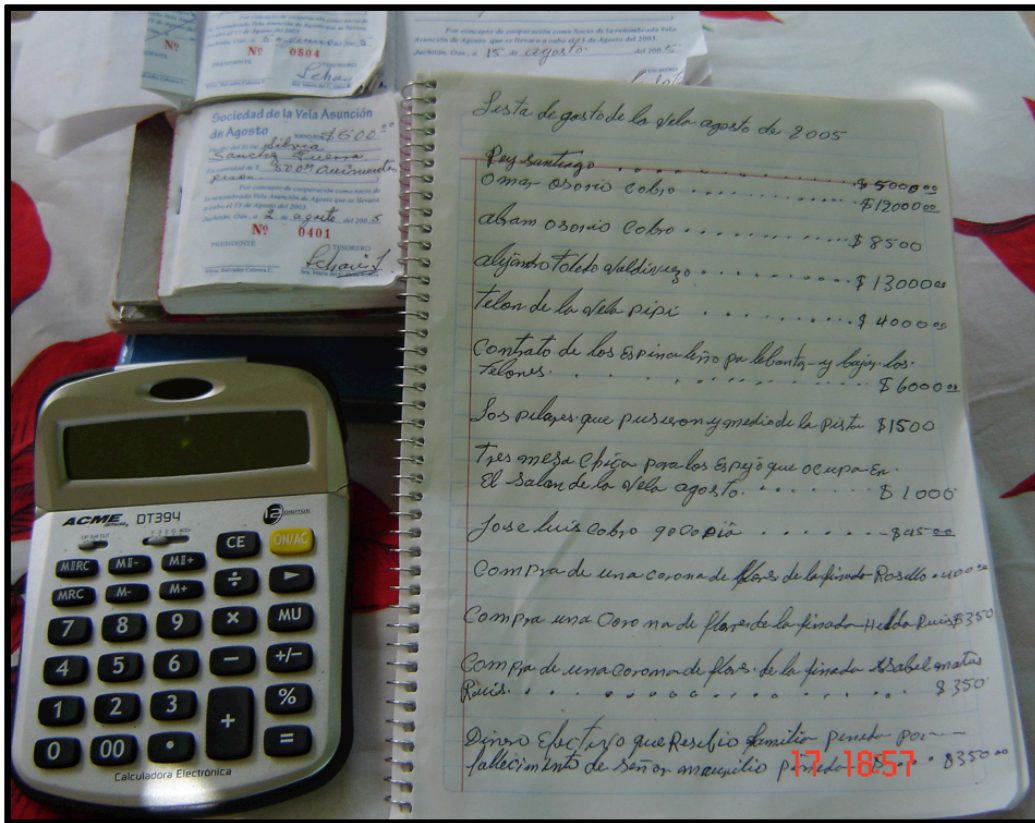 Por concepto de cooperación como socio de
la renombrada Vela Asunción de Agosto que se llevara
a cabo el 13 de Agosto del 2005.
Nº
Nº 0504
PRESIDENTE
TESORERO
Por concepto de cooperación como Socio de la renombrada Vela
Asunción de Agosto que se llevara a cabo el 13 de Agosto del 2005.
Juchitán, Oax., a 15 de agosto del 2005
TESORERO
Sociedad de la Vela Asunción
de Agosto $500.00
Silvia
Sanchez Guerra
La cantidad de $ 500.00 quinientos
pesos
Por concepto de cooperación como socio de
la renombrada Vela Asunción de Agosto que se llevara
a cabo el 13 de Agosto del 2005.
Juchitán, Oax., a 2 de agosto del 2005
Nº 0401
PRESIDENTE TESORERO
Lista de gasto de la vela agosto de 2005
Rey santiago . . . . . . . . . . $5000 00
Omar osorio cobro . . . . . . . . . . $12000 00
abram osorio cobro . . . . . . . . . . $8500
alejandro Toledo Valdiviezo . . . . . . . . $13000 00
Telon de la vela pipi . . . . . . . . $4000 00
Contrato de los Espinaleño pa lebantar y bajar los
Telones. . . . . . . . . . $6000 00
Los pilares que pusieron y medio de la pista $1500
Tres mesa chica para los Espejo que ocupa En
El salon de la vela agosto. . . . . . $1000
Jose luis cobro . . . . . .
Compra de una corona de flores de la finada Rosillo . 400 00
Compra una Corona de flores de la finada Helda Ruis $350
Compra de una corona de flores de la finada Isabel matus
Ruis. . . . . . . . . . . $350
Dinero Efectivo que Resibio familia pineda por
fallecimiento de Señor maurilio pineda . . . $350 00
17:18:57
ACME DT394
12 DIGITOS
CE ON/AC
MIIRC MII- MII+ ÷ ►
MRC M- M+ × MU
7 8 9 − +/−
4 5 6 + %
1 2 3 =
0 00 •
Calculadora Electrónica